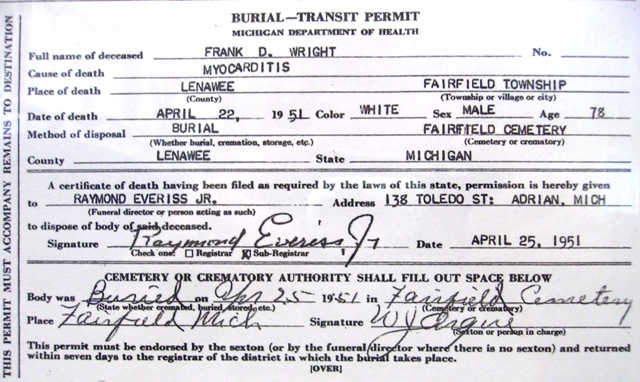 BURIAL—TRANSIT PERMIT
MICHIGAN DEPARTMENT OF HEALTH
Full name of deceased FRANK D. WRIGHT No.
Cause of death MYOCARDITIS
Place of death LENAWEE FAIRFIELD TOWNSHIP
(County) (Township or village or city)
Date of death APRIL 22, 1951 Color WHITE Sex MALE Age 78
Method of disposal BURIAL FAIRFIELD CEMETERY
(Whether burial, cremation, storage, etc.) (Cemetery or crematory)
County LENAWEE State MICHIGAN
A certificate of death having been filed as required by the laws of this state, permission is hereby given
to RAYMOND EVERISS JR. Address 138 TOLEDO ST: ADRIAN, MICH
(Funeral director or person acting as such)
to dispose of body of said deceased.
Signature Raymond Everiss Jr Date APRIL 25, 1951
Check one: Registrar X Sub-Registrar
CEMETERY OR CREMATORY AUTHORITY SHALL FILL OUT SPACE BELOW
Body was Buried on Apr 25 1951 in Fairfield Cemetery
(State whether cremated, buried, stored, etc.) (Cemetery or crematory)
Place Fairfield Mich Signature W J
(Sexton or person in charge)
This permit must be endorsed by the sexton (or by the funeral director where there is no sexton) and returned
within seven days to the registrar of the district in which the burial takes place.
[OVER]
THIS PERMIT MUST ACCOMPANY REMAINS TO DESTINATION